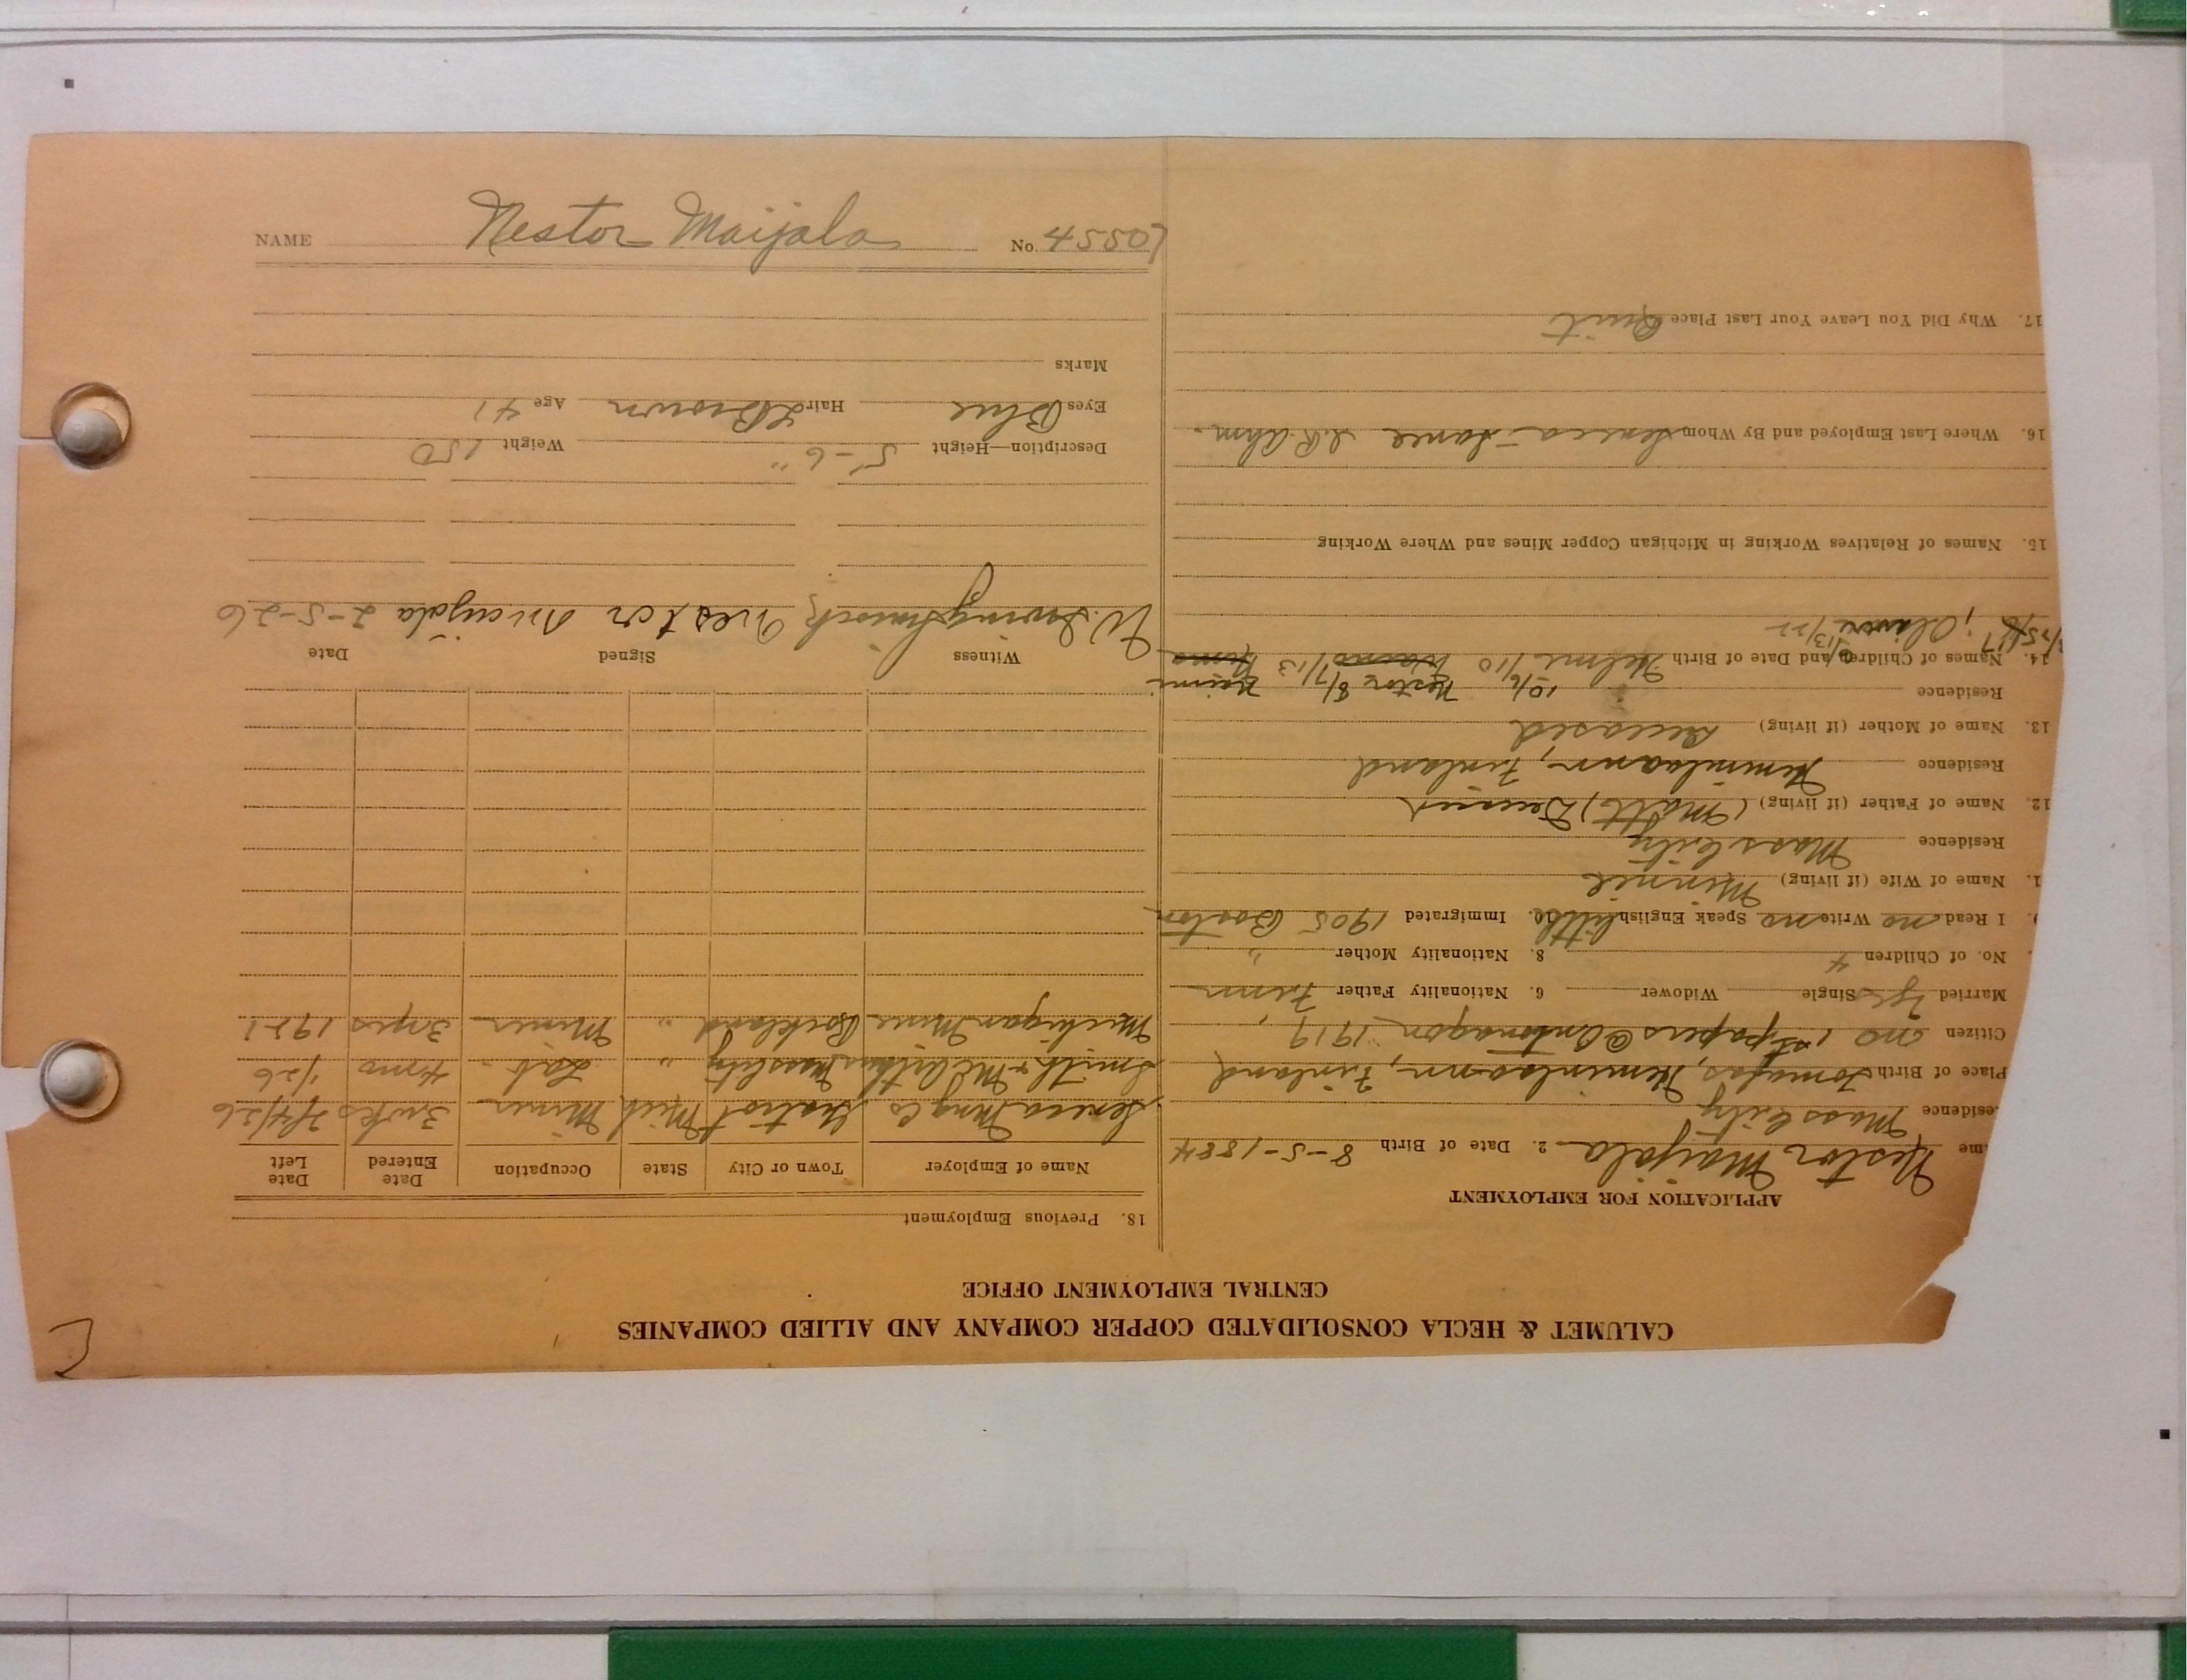 NAME Nestor Maijala No. 45507
CALUMET & HECLA CONSOLIDATED COPPER COMPANY AND ALLIED COMPANIES
CENTRAL EMPLOYMENT OFFICE
APPLICATION FOR EMPLOYMENT
me Nestor Maijala 2. Date of Birth 8-5-1884
esidence Mass City
Place of Birth Finland
Citizen no 1st papers @ Ontonagon 1919
Married Yes Single Widower 6. Nationality Father Finn
No. of Children 4 8. Nationality Mother "
9. I Read no Write no Speak English little 10. Immigrated 1905 Boston
1. Name of Wife (if living) Minnie
Residence Mass City
12. Name of Father (if living) (Matt) Deceased
Residence Finland
13. Name of Mother (if living) Deceased
Residence
10/6 Nestor 8/7/13
14. Names of Children and Date of Birth Helmi /10
15. Names of Relatives Working in Michigan Copper Mines and Where Working
16. Where Last Employed and By Whom Seneca
17. Why Did You Leave Your Last Place Quit
18. Previous Employment
Name of Employer Town or City State Occupation Date Entered Date Left
Seneca Mng Co Gratiot Mich Miner 3 wks 2/4/26
Smith & Mass City " Lab. 4 mo 1/26
Michigan Mine Rockland " Miner 3 yrs 1921
Witness Signed Date
W. Nestor Maijala 2-5-26
Description—Height 5'-6" Weight 150
Eyes Blue Hair L Brown Age 41
Marks